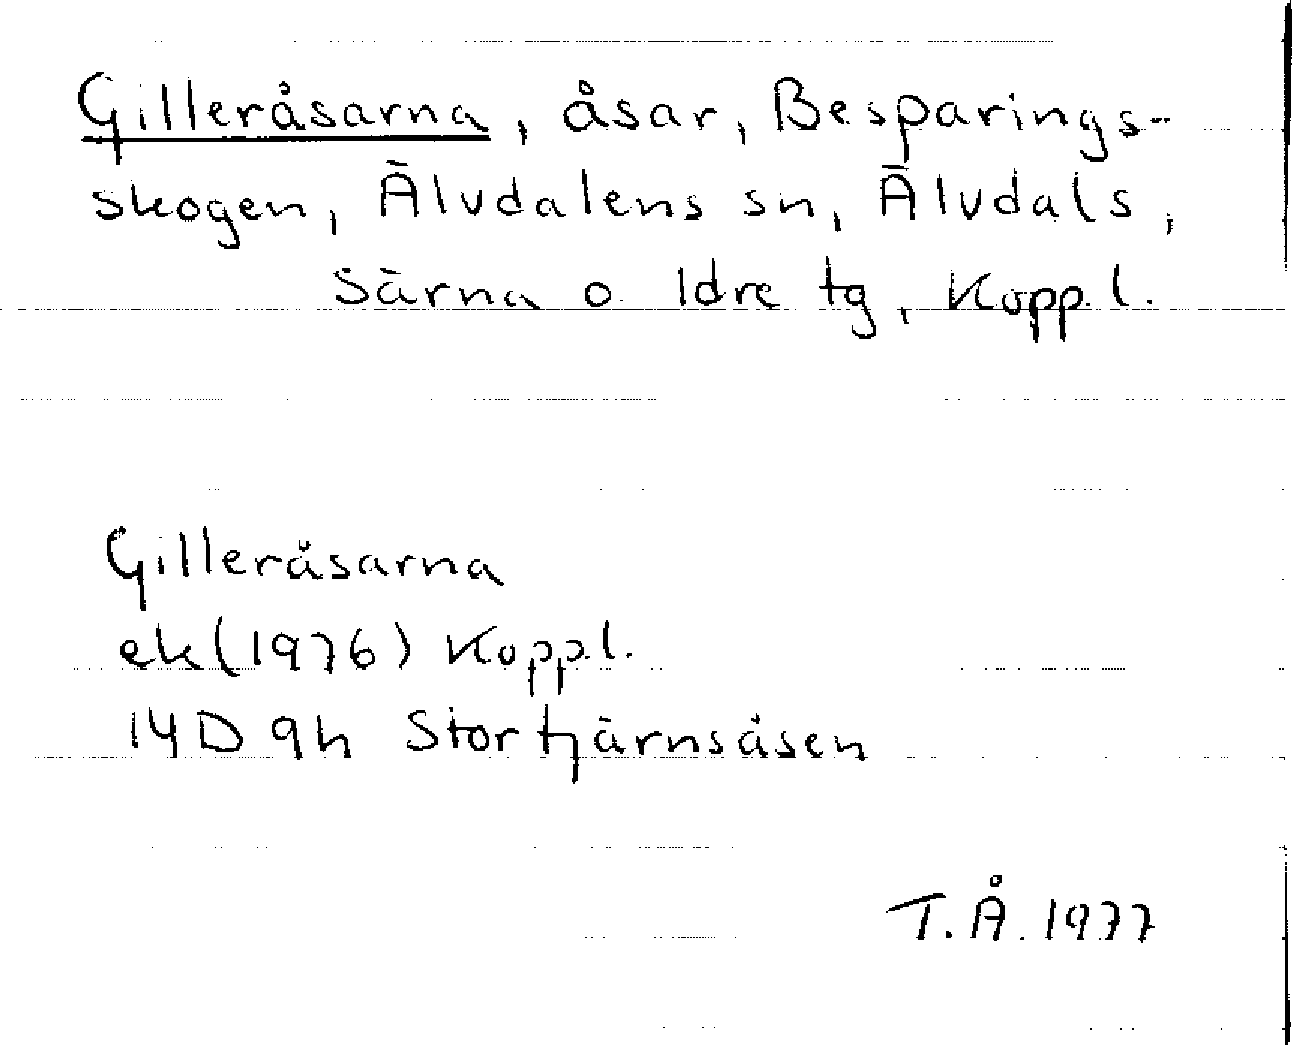 Gilleråsarna, åsar, Besparings-
skogen, Älvdalens sn, Älvdals,
Särna o. Idre tg, Kopp.l.
Gilleråsarna
ek(1976) Kopp.l.
14D 9h Stortjärnsåsen
T.Å. 1977